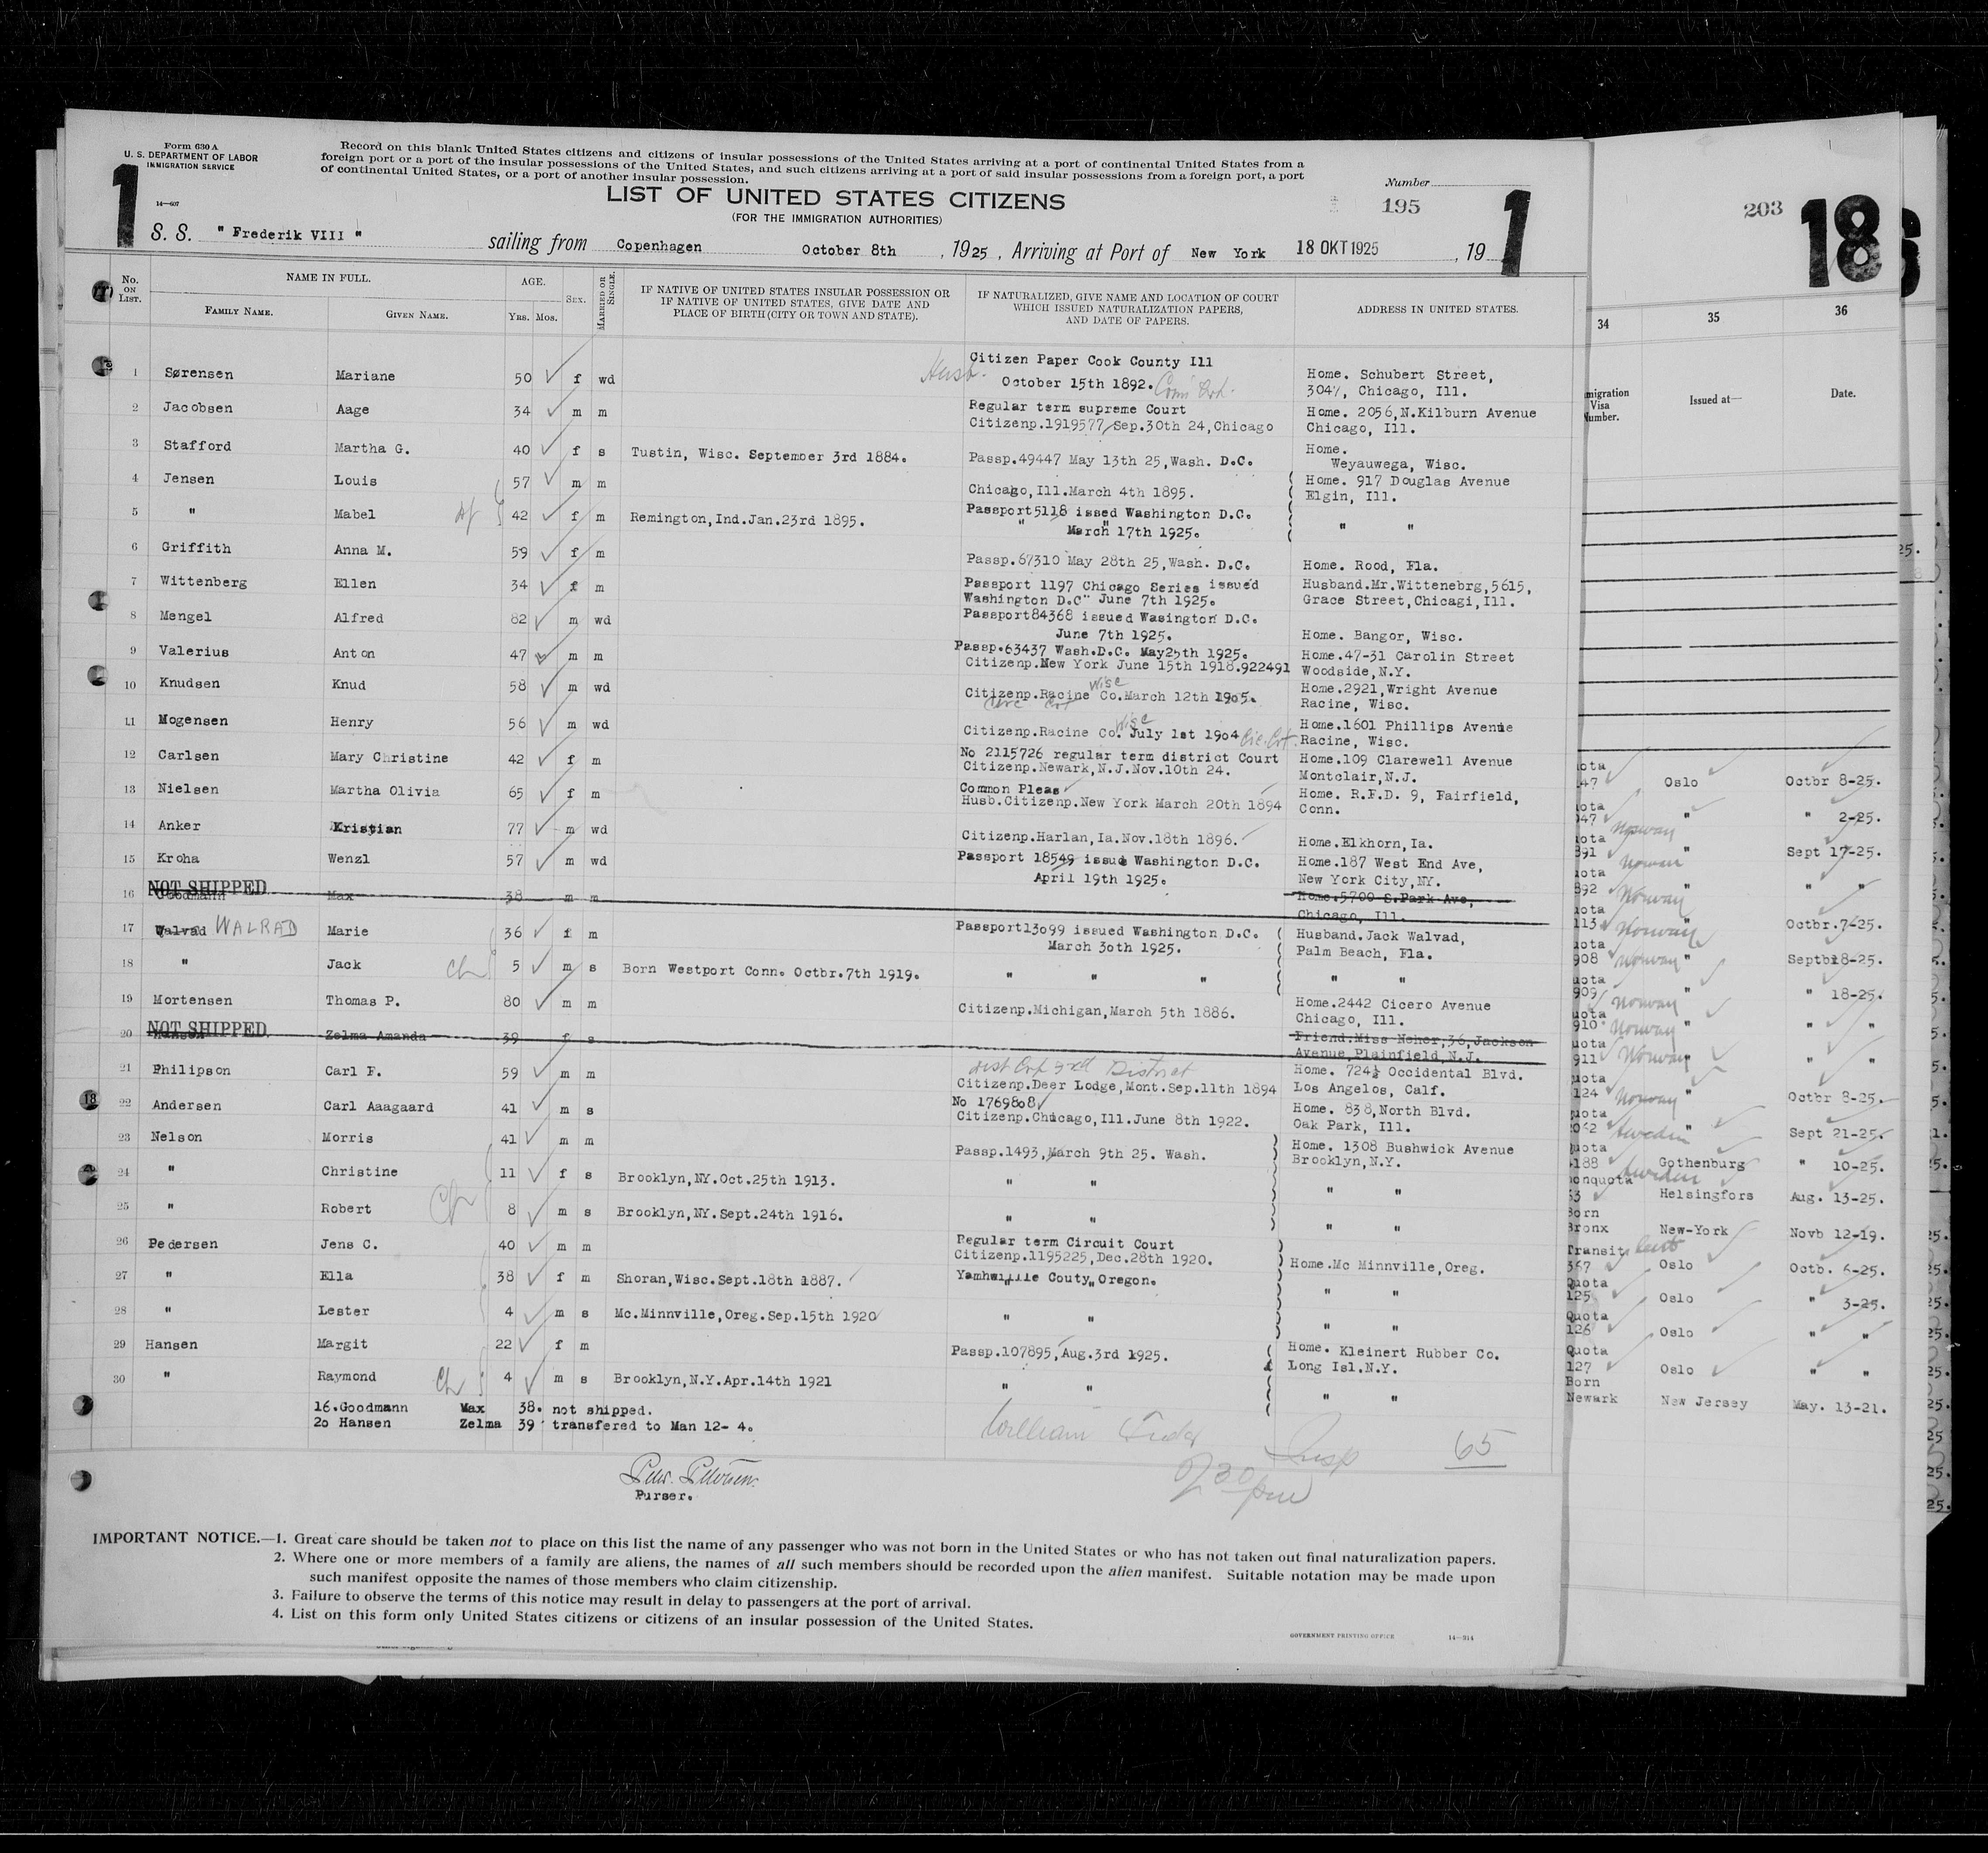 Form 630 A
U. S. DEPARTMENT OF LABOR
IMMIGRATION SERVICE
14—607
Record on this blank United States citizens and citizens of insular possessions of the United States arriving at a port of continental United States from a
foreign port or a port of the insular possessions of the United States, and such citizens arriving at a port of said insular possessions from a foreign port, a port
of continental United States, or a port of another insular possession.
1
LIST OF UNITED STATES CITIZENS
(FOR THE IMMIGRATION AUTHORITIES)
Number
195
1
S. S. " Frederik VIII " sailing from Copenhagen October 8th , 1925 , Arriving at Port of New York 18 OKT 1925 , 19
No. ON LIST.
NAME IN FULL.
FAMILY NAME. GIVEN NAME.
AGE.
YRS. MOS.
SEX.
MARRIED OR SINGLE.
IF NATIVE OF UNITED STATES INSULAR POSSESSION OR
IF NATIVE OF UNITED STATES, GIVE DATE AND
PLACE OF BIRTH (CITY OR TOWN AND STATE).
IF NATURALIZED, GIVE NAME AND LOCATION OF COURT
WHICH ISSUED NATURALIZATION PAPERS,
AND DATE OF PAPERS.
ADDRESS IN UNITED STATES.
1 Sørensen Mariane 50 f wd Citizen Paper Cook County Ill
October 15th 1892. Home. Schubert Street,
3047, Chicago, Ill.
2 Jacobsen Aage 34 m m Regular term supreme Court
Citizenp.1919577,Sep.30th 24,Chicago Home. 2056,N.Kilburn Avenue
Chicago, Ill.
3 Stafford Martha G. 40 f s Tustin, Wisc. September 3rd 1884. Passp.49447 May 13th 25,Wash. D.C. Home.
Weyauwega, Wisc.
4 Jensen Louis 57 m m Chicago,Ill.March 4th 1895. Home. 917 Douglas Avenue
Elgin, Ill.
5 " Mabel 42 f m Remington,Ind.Jan.23rd 1895. Passport5118 issued Washington D.C.
" March 17th 1925. " "
6 Griffith Anna M. 59 f m Passp.67310 May 28th 25,Wash. D.C. Home. Rood, Fla.
7 Wittenberg Ellen 34 f m Passport 1197 Chicago Series issued
Washington D.C" June 7th 1925. Husband.Mr.Wittenebrg,5615,
Grace Street,Chicagi,Ill.
8 Mengel Alfred 82 m wd Passport84368 issued Wasington D.C.
June 7th 1925. Home. Bangor, Wisc.
9 Valerius Anton 47 m m Passp.63437 Wash.D.C. May25th 1925.
Citizenp.New York June 15th 1918.922491 Home.47-31 Carolin Street
Woodside,N.Y.
10 Knudsen Knud 58 m wd Citizenp.Racine Wisc Co.March 12th 1905. Home.2921,Wright Avenue
Racine, Wisc.
11 Mogensen Henry 56 m wd Citizenp.Racine Co. Wisc July 1st 1904 Home.1601 Phillips Avenue
Racine, Wisc.
12 Carlsen Mary Christine 42 f m No 2115726 regular term district Court
Citizenp.Newark,N.J.Nov.10th 24. Home.109 Clarewell Avenue
Montclair,N.J.
13 Nielsen Martha Olivia 65 f m Common Pleas
Husb.Citizenp.New York March 20th 1894 Home. R.F.D. 9, Fairfield,
Conn.
14 Anker Kristian 77 m wd Citizenp.Harlan,Ia.Nov.18th 1896. Home.Elkhorn,Ia.
15 Kroha Wenzl 57 m wd Passport 18549 issue Washington D.C.
April 19th 1925. Home.187 West End Ave,
New York City,NY.
16 NOT SHIPPED Goodmann Max 38 m m Home.5700 S.Park Ave,
Chicago, Ill.
17 Walvad WALRAD Marie 36 f m Passport13099 issued Washington D.C.
March 30th 1925. Husband.Jack Walvad,
Palm Beach, Fla.
18 " Jack Ch 5 m s Born Westport Conn. Octbr.7th 1919. " " " " "
19 Mortensen Thomas P. 80 m m Citizenp.Michigan,March 5th 1886. Home.2442 Cicero Avenue
Chicago, Ill.
20 NOT SHIPPED Hansen Zelma Amanda 39 f s Friend.Miss Neher,36,Jackson
Avenue,Plainfield,N.J.
21 Philipson Carl F. 59 m m Dist Crt 3rd District
Citizenp.Deer Lodge,Mont.Sep.11th 1894 Home. 724½ Occidental Blvd.
Los Angelos, Calf.
22 Andersen Carl Aaagaard 41 m s No 1769808
Citizenp.Chicago,Ill.June 8th 1922. Home. 838,North Blvd.
Oak Park, Ill.
23 Nelson Morris 41 m m Passp.1493,March 9th 25. Wash. Home. 1308 Bushwick Avenue
Brooklyn,N.Y.
24 " Christine 11 f s Brooklyn,NY.Oct.25th 1913. " " " "
25 " Robert Ch 8 m s Brooklyn,NY.Sept.24th 1916. " " " "
26 Pedersen Jens C. 40 m m Regular term Circuit Court
Citizenp.1195225,Dec.28th 1920. Home.Mc Minnville,Oreg.
27 " Ella 38 f m Shoran,Wisc.Sept.18th 1887. Couty Oregon. " "
28 " Lester 4 m s Mc.Minnville,Oreg.Sep.15th 1920 " " " "
29 Hansen Margit 22 f m Passp.107895,Aug.3rd 1925. Home. Kleinert Rubber Co.
Long Isl.N.Y.
30 " Raymond Ch 4 m s Brooklyn,N.Y.Apr.14th 1921 " " " "
16.Goodmann Max 38. not shipped.
20 Hansen Zelma 39 transfered to Man 12- 4.
William
Insp
65
Purser.
IMPORTANT NOTICE.—1. Great care should be taken not to place on this list the name of any passenger who was not born in the United States or who has not taken out final naturalization papers.
2. Where one or more members of a family are aliens, the names of all such members should be recorded upon the alien manifest. Suitable notation may be made upon
such manifest opposite the names of those members who claim citizenship.
3. Failure to observe the terms of this notice may result in delay to passengers at the port of arrival.
4. List on this form only United States citizens or citizens of an insular possession of the United States.
GOVERNMENT PRINTING OFFICE 14—914
203
18
34 35 36
Visa
Issued at—
Date.
47 Oslo Octbr 8-25.
947 Norway " " 2-25.
891 Norway " Sept 17-25.
892 Norway " " "
113 Norway Octbr.7-25.
908 Norway " Septbr18-25.
909 Norway " " 18-25.
910 Norway " " "
911 Norway " " "
124 Norway Octbr 8-25.
Sweden " Sept 21-25.
Gothenburg " 10-25.
Sweden
Helsingfors Aug. 13-25.
Born
Bronx New-York Novb 12-19.
Transit
367 Oslo Octb. 6-25.
Quota
125 Oslo " 3-25.
Quota
126 Oslo " "
Quota
127 Oslo " "
Born
Newark New Jersey May. 13-21.